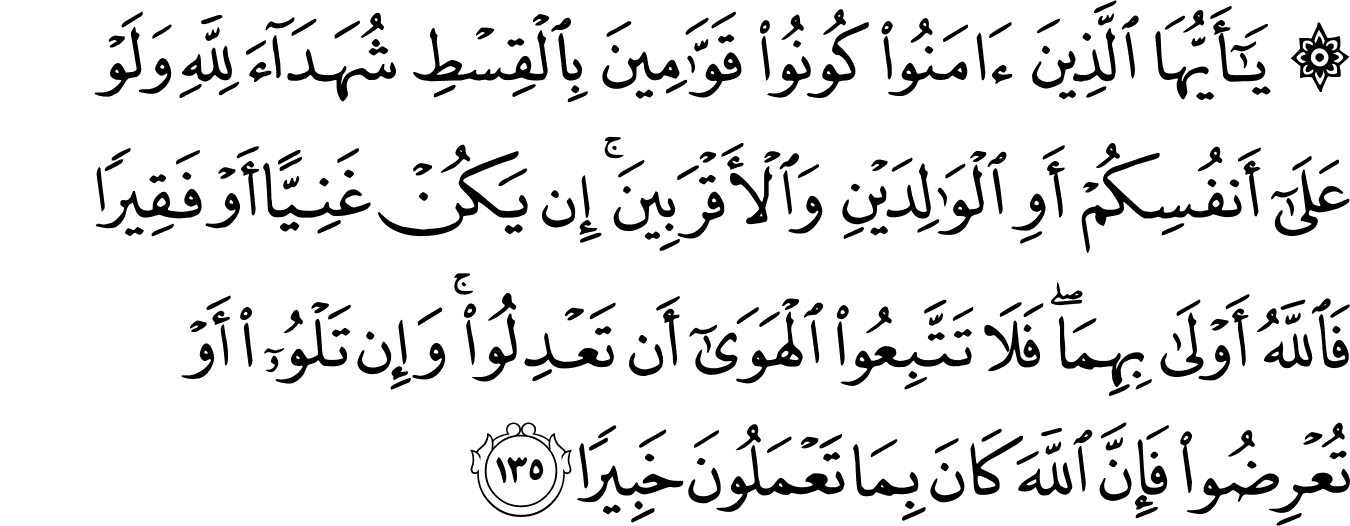 ۞ يَـٰٓأَيُّهَا ٱلَّذِينَ ءَامَنُوا۟ كُونُوا۟ قَوَّٰمِينَ بِٱلْقِسْطِ شُهَدَآءَ لِلَّهِ وَلَوْ
عَلَىٰٓ أَنفُسِكُمْ أَوِ ٱلْوَٰلِدَيْنِ وَٱلْأَقْرَبِينَ ۚ إِن يَكُنْ غَنِيًّا أَوْ فَقِيرًا
فَٱللَّهُ أَوْلَىٰ بِهِمَا ۖ فَلَا تَتَّبِعُوا۟ ٱلْهَوَىٰٓ أَن تَعْدِلُوا۟ ۚ وَإِن تَلْوُۥٓا۟ أَوْ
تُعْرِضُوا۟ فَإِنَّ ٱللَّهَ كَانَ بِمَا تَعْمَلُونَ خَبِيرًا ١٣٥